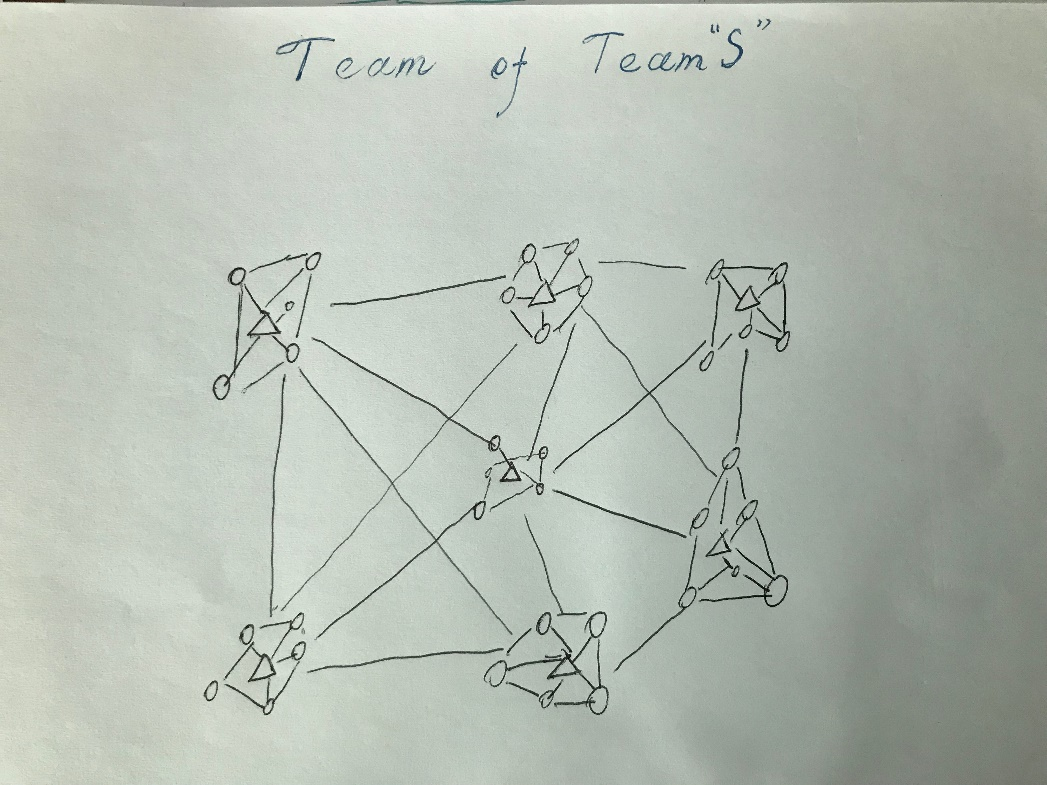 Team of Team"S"